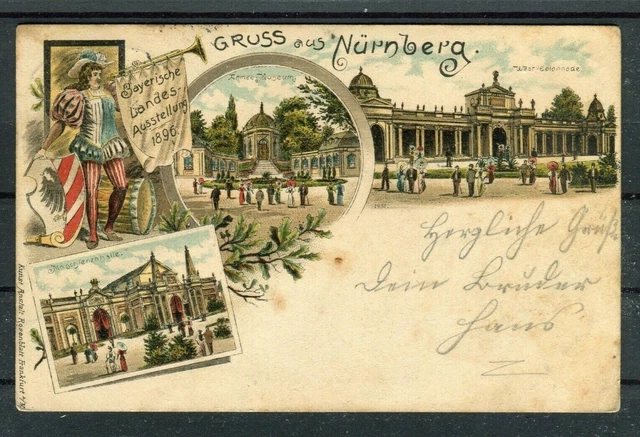 GRUSS aus Nürnberg.
Bayerische
Landes-
Ausstellung
1896.
Armee-Museum
West-Colonnade
Maschinenhalle.
Herzliche Grüße
Dein Bruder
Hans
Kunst Anstalt Rosenblatt Frankfurt a/M